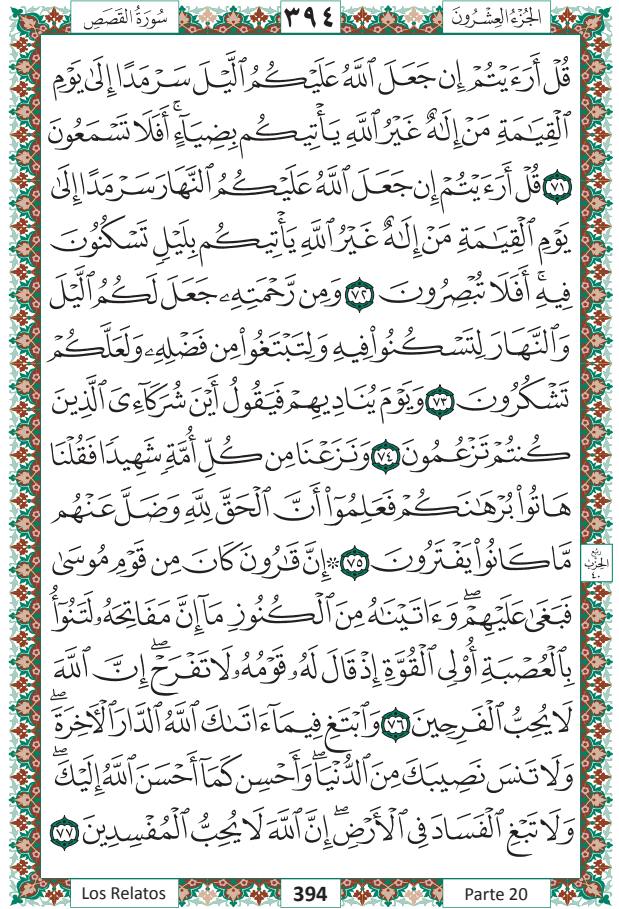 سُورَةُ القَصَصِ ٣٩٤ الجُزْءُ العِشْرُونَ
قُلْ أَرَءَيْتُمْ إِن جَعَلَ ٱللَّهُ عَلَيْكُمُ ٱلَّيْلَ سَرْمَدًا إِلَىٰ يَوْمِ
ٱلْقِيَٰمَةِ مَنْ إِلَٰهٌ غَيْرُ ٱللَّهِ يَأْتِيكُم بِضِيَآءٍ ۚ أَفَلَا تَسْمَعُونَ
٧١ قُلْ أَرَءَيْتُمْ إِن جَعَلَ ٱللَّهُ عَلَيْكُمُ ٱلنَّهَارَ سَرْمَدًا إِلَىٰ
يَوْمِ ٱلْقِيَٰمَةِ مَنْ إِلَٰهٌ غَيْرُ ٱللَّهِ يَأْتِيكُم بِلَيْلٍ تَسْكُنُونَ
فِيهِ ۚ أَفَلَا تُبْصِرُونَ ٧٢ وَمِن رَّحْمَتِهِۦ جَعَلَ لَكُمُ ٱلَّيْلَ
وَٱلنَّهَارَ لِتَسْكُنُوا۟ فِيهِ وَلِتَبْتَغُوا۟ مِن فَضْلِهِۦ وَلَعَلَّكُمْ
تَشْكُرُونَ ٧٣ وَيَوْمَ يُنَادِيهِمْ فَيَقُولُ أَيْنَ شُرَكَآءِىَ ٱلَّذِينَ
كُنتُمْ تَزْعُمُونَ ٧٤ وَنَزَعْنَا مِن كُلِّ أُمَّةٍ شَهِيدًا فَقُلْنَا
هَاتُوا۟ بُرْهَٰنَكُمْ فَعَلِمُوٓا۟ أَنَّ ٱلْحَقَّ لِلَّهِ وَضَلَّ عَنْهُم
مَّا كَانُوا۟ يَفْتَرُونَ ٧٥ ۞ إِنَّ قَٰرُونَ كَانَ مِن قَوْمِ مُوسَىٰ
ربع الحزب ٤٠
فَبَغَىٰ عَلَيْهِمْ ۖ وَءَاتَيْنَٰهُ مِنَ ٱلْكُنُوزِ مَآ إِنَّ مَفَاتِحَهُۥ لَتَنُوٓأُ
بِٱلْعُصْبَةِ أُو۟لِى ٱلْقُوَّةِ إِذْ قَالَ لَهُۥ قَوْمُهُۥ لَا تَفْرَحْ ۖ إِنَّ ٱللَّهَ
لَا يُحِبُّ ٱلْفَرِحِينَ ٧٦ وَٱبْتَغِ فِيمَآ ءَاتَىٰكَ ٱللَّهُ ٱلدَّارَ ٱلْءَاخِرَةَ ۖ
وَلَا تَنسَ نَصِيبَكَ مِنَ ٱلدُّنْيَا ۖ وَأَحْسِن كَمَآ أَحْسَنَ ٱللَّهُ إِلَيْكَ ۖ
وَلَا تَبْغِ ٱلْفَسَادَ فِى ٱلْأَرْضِ ۖ إِنَّ ٱللَّهَ لَا يُحِبُّ ٱلْمُفْسِدِينَ ٧٧
Los Relatos 394 Parte 20